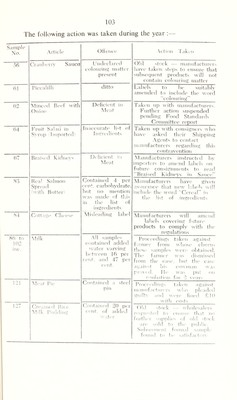 103
The following action was taken during the year :—
Sample No.
Article
Offence
Action Taken
36
Cranberry Sauce
Undeclared colouring matter present
Old stock — manufacturers have taken steps to ensure that subsequent products will not contain colouring matter
61
Piccalilli
ditto
Labels to be suitably amended to include the word "colouring"
62
Minced Beef with Onion
Deficient in Meat
Taken up with manufacturers. Further action suspended pending Food Standards Committee report
64
Fruit Salad in Syrup (Imported)
Inaccurate list of ingredients
Taken up with consignees who have asked their Shipping Agents to contact manufacturers regarding this contravention
67
Braised Kidneys
Deficient in Meat
Manufacturers instructed by importers to amend labels on future consignments to read "Braised Kidneys in Sauce"
83
Beef Salmon Spread (with Butter)
Contained 4 per cent. carbohydrate but no mention was made of this in the list of ingredients
Manufacturers have given assurance that new labels will include the word "Cereal" in the list of ingredients
84
Cottage Cheese
Misleading label
Manufacturers will amend labels covering future products to comply with the regulations
102
Milk
All samples contained added water varying between 16 per cent. and 47 per cent
Proceedings taken against farmer from whose
these samples were obtained. The farmer was dismissed from the case but the case against his
proved. He was put on probation for 2 years
121
Meat Pie
Contained a steel
Proceedings taken against manufacturers who pleaded guilty and were fined £10 with costs
127
Creamed Rice Milk Pudding
Contained 20 per cent. of added water
Old stock — wholesalers requested to ensure that no further supplies of old stock are sold to the public. Subsequent formal sample found to be satisfactory